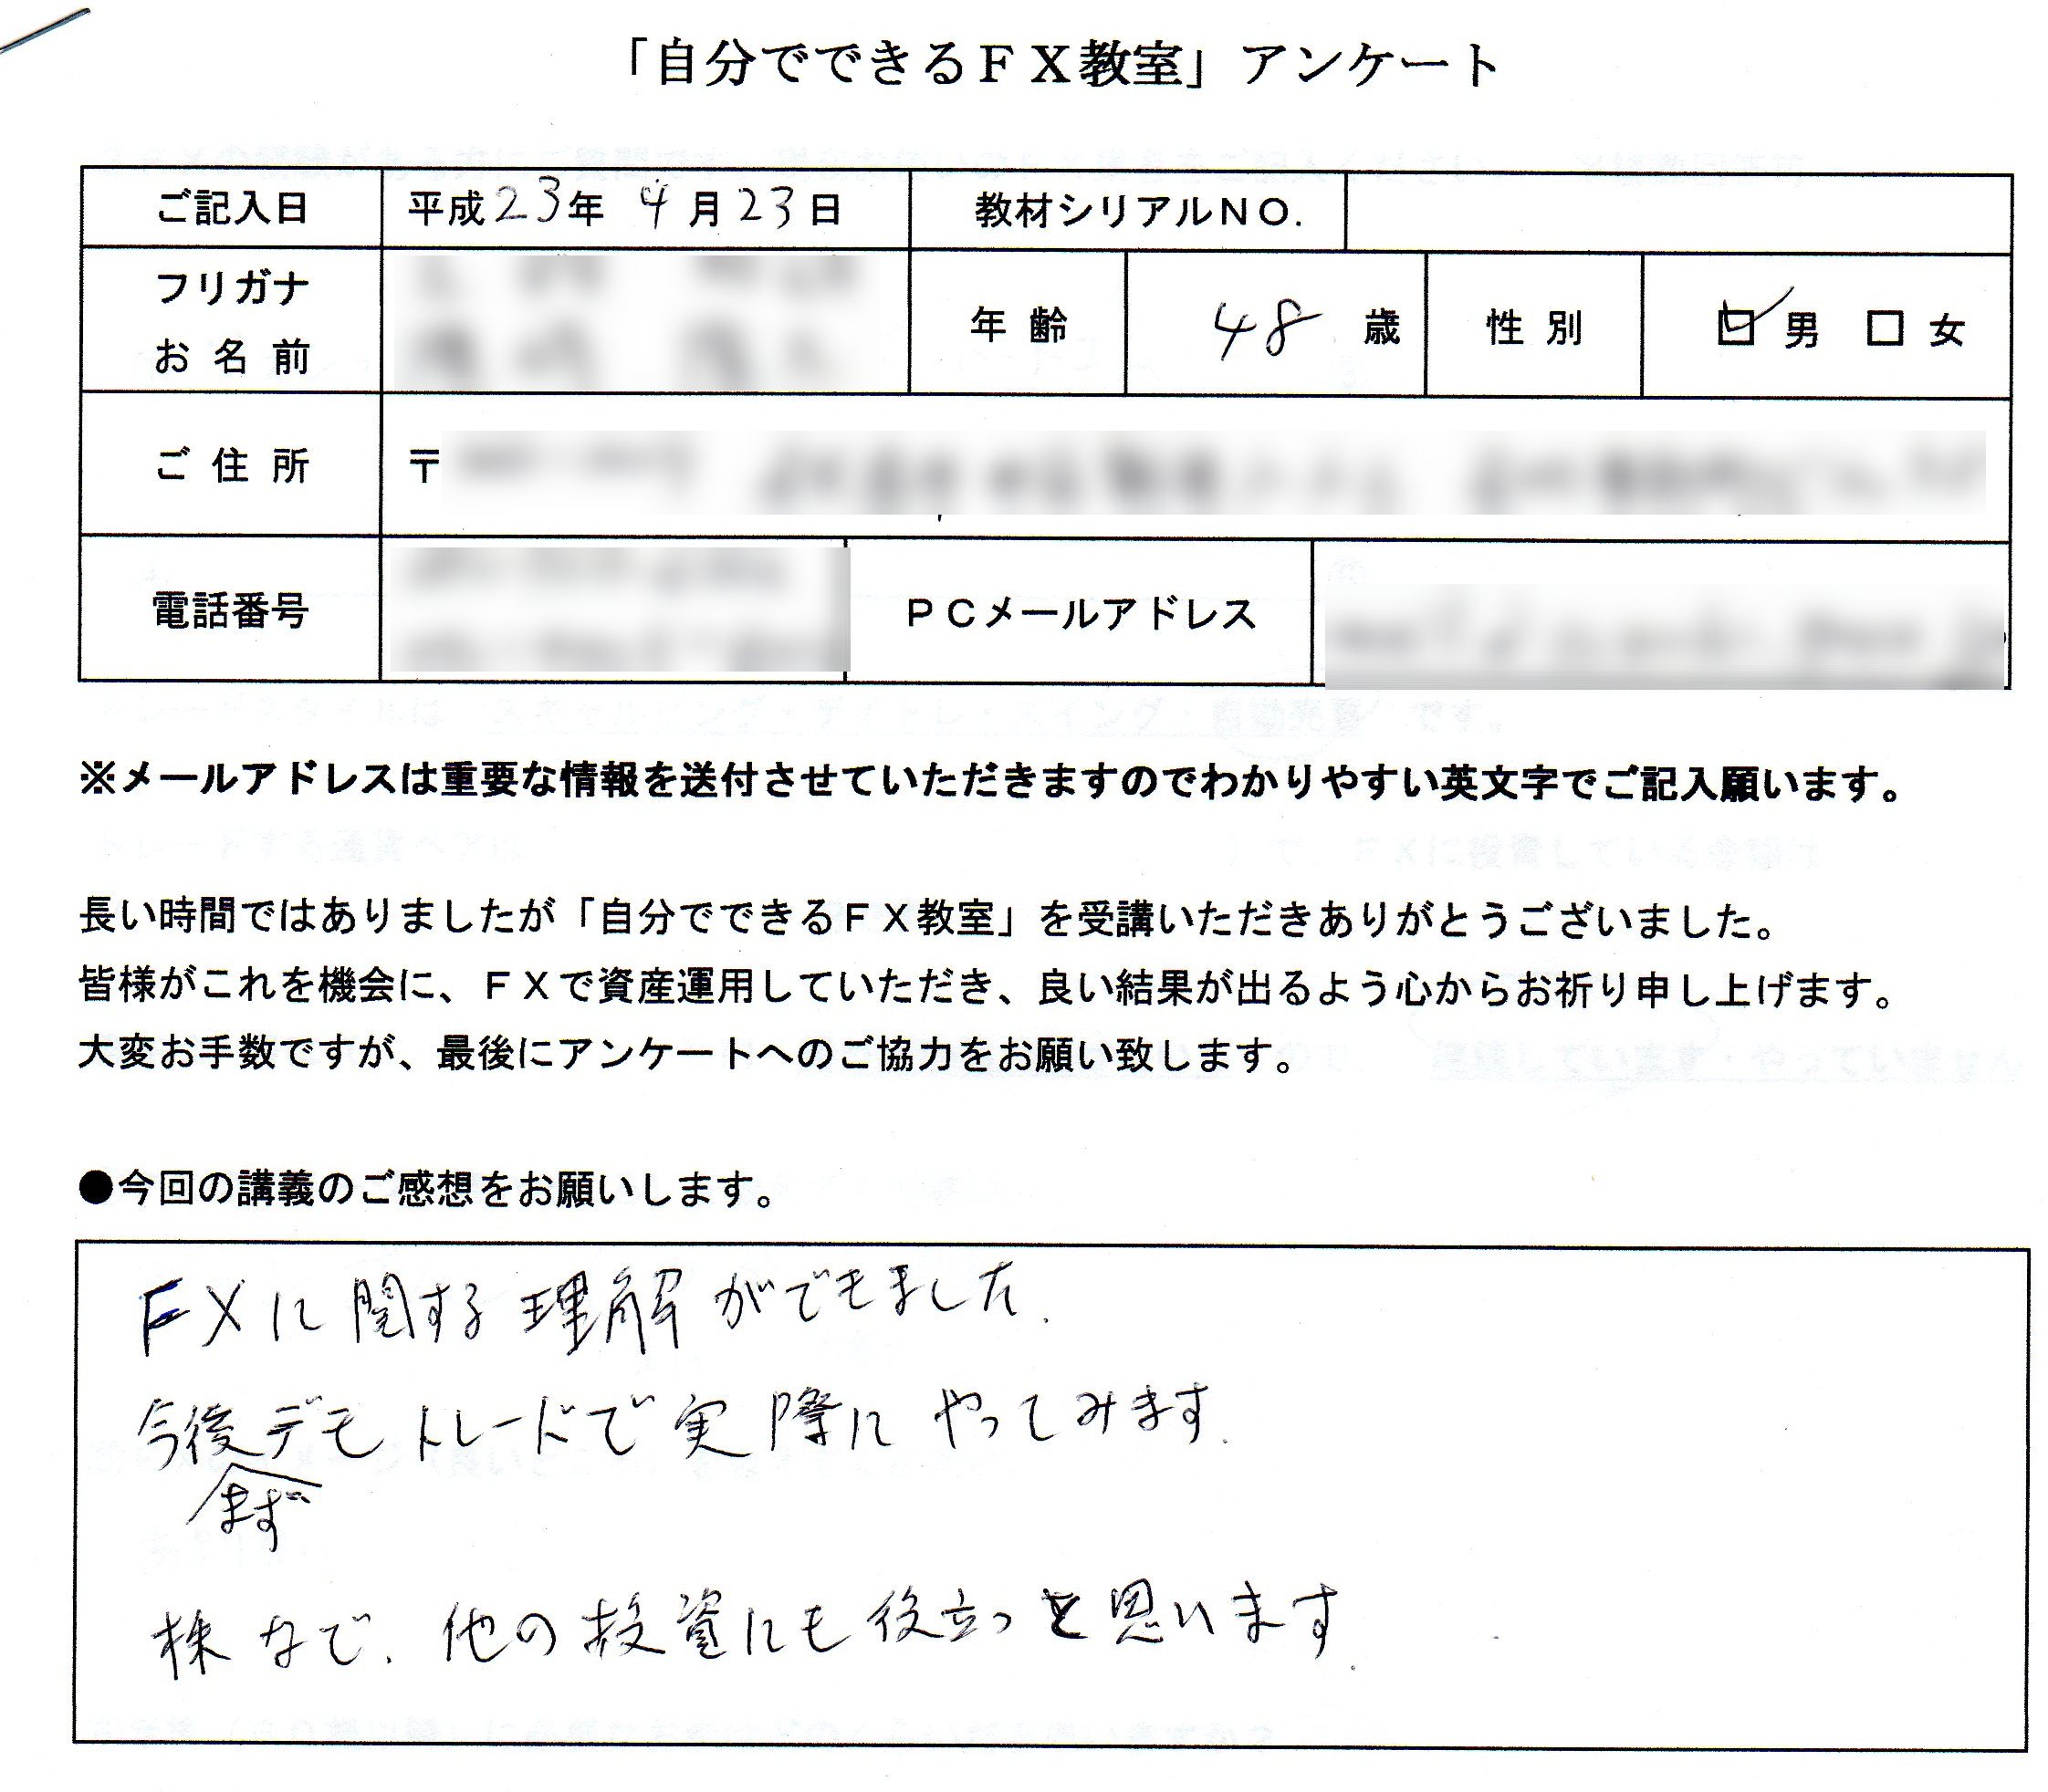 「自分でできるＦＸ教室」アンケート
ご記入日 平成23年 4月23日 教材シリアルＮＯ.
フリガナ
お名前 年齢 48歳 性別 ☑男 □女
ご住所 〒
電話番号 ＰＣメールアドレス
※メールアドレスは重要な情報を送付させていただきますのでわかりやすい英文字でご記入願います。
長い時間ではありましたが「自分でできるＦＸ教室」を受講いただきありがとうございました。
皆様がこれを機会に、ＦＸで資産運用していただき、良い結果が出るよう心からお祈り申し上げます。
大変お手数ですが、最後にアンケートへのご協力をお願い致します。
●今回の講義のご感想をお願いします。
FXに関する理解ができました.
今後デモトレードで実際にやってみます.
まず
株など、他の投資にも役立つと思います.